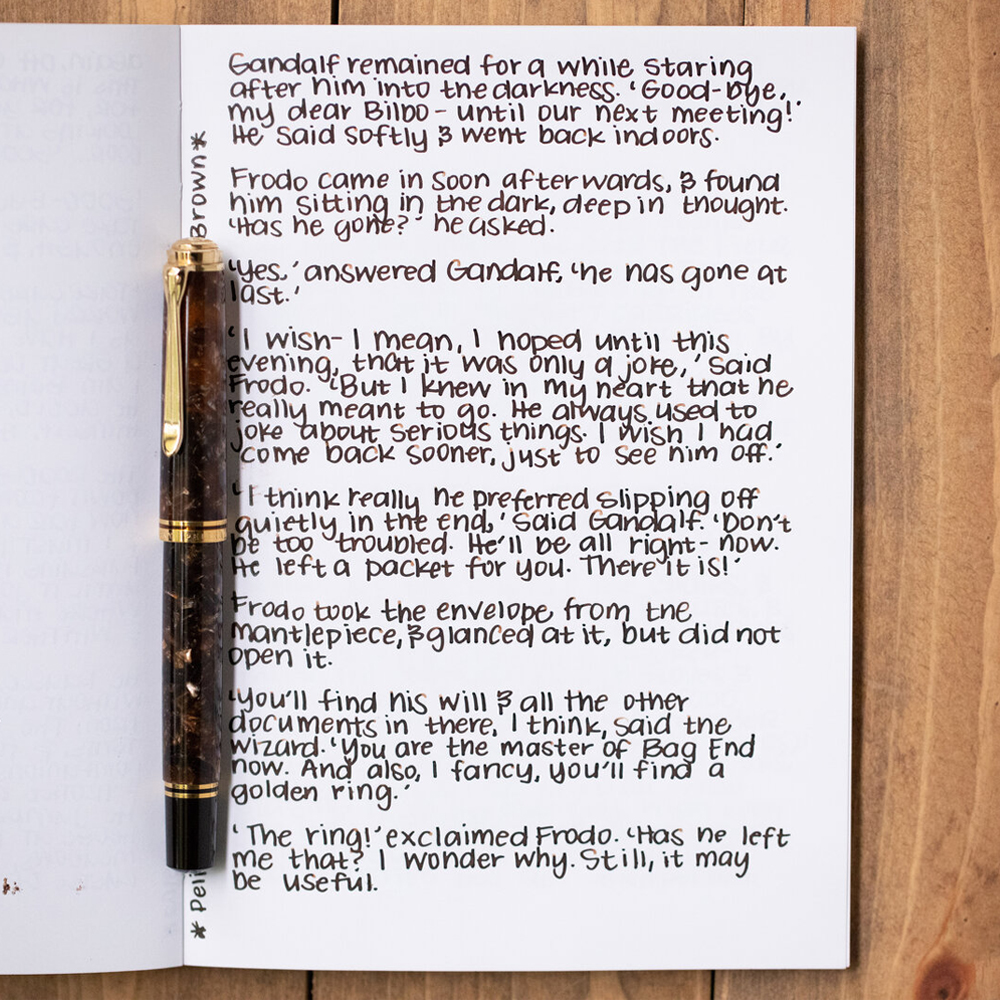 Gandalf remained for a while staring
after him into the darkness. 'Good-bye,
my dear Bilbo - until our next meeting!'
He said softly & went back indoors.
Frodo came in soon afterwards, & found
him sitting in the dark, deep in thought.
'Has he gone?' he asked.
'Yes,' answered Gandalf, 'he has gone at
last.'
'I wish - I mean, I hoped until this
evening, that it was only a joke,' said
Frodo. 'But I knew in my heart that he
really meant to go. He always used to
joke about serious things. I wish I had
come back sooner, just to see him off.'
'I think really he preferred slipping off
quietly in the end,' said Gandalf. 'Don't
be too troubled. He'll be all right - now.
He left a packet for you. There it is!'
Frodo took the envelope from the
mantlepiece, & glanced at it, but did not
open it.
'You'll find his will & all the other
documents in there, I think, said the
wizard. 'You are the master of Bag End
now. And also, I fancy, you'll find a
golden ring.'
'The ring!' exclaimed Frodo. 'Has he left
me that? I wonder why. Still, it may
be useful.
* Peli
Brown *